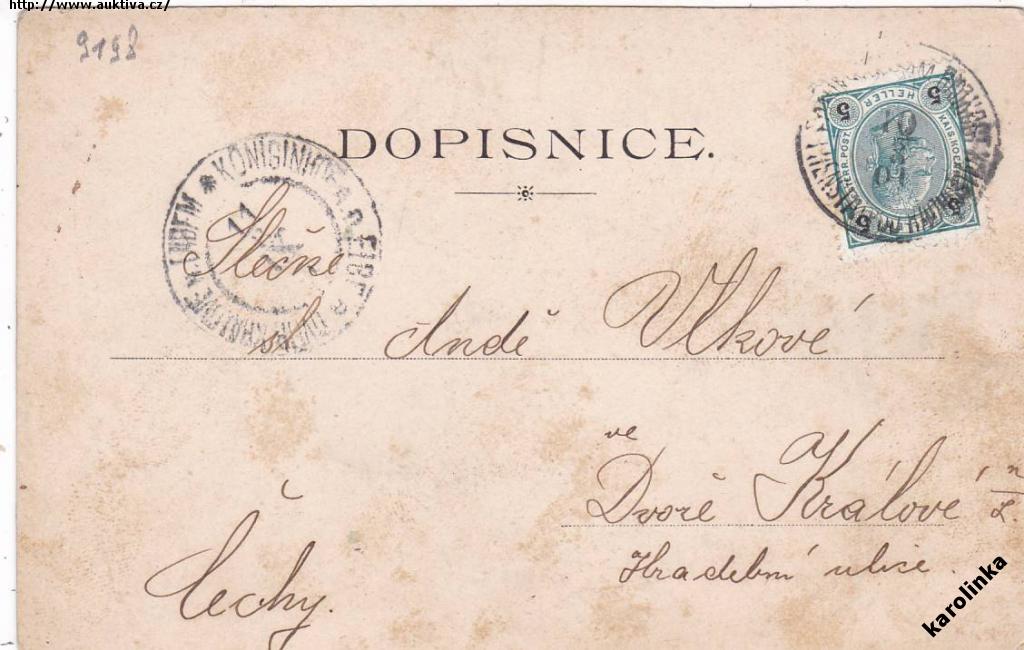 http://www.auktiva.cz/
9198
DOPISNICE.
5 HELLER 5
KÖNIGINHOF A. D. ELBE
Slečně
sl. Andě Vlkové
ve
Dvoře Králové n/L.
Hradební ulice.
Čechy.
karolinka